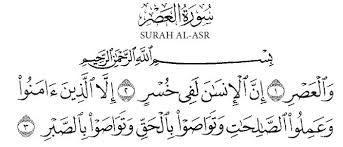 سُورَةُ الْعَصْرِ
SURAH AL-ASR
بِسْمِ اللَّهِ الرَّحْمَٰنِ الرَّحِيمِ
وَالْعَصْرِ ۝١ إِنَّ الْإِنْسَانَ لَفِي خُسْرٍ ۝٢ إِلَّا الَّذِينَ ءَامَنُوا
وَعَمِلُوا الصَّالِحَاتِ وَتَوَاصَوْا بِالْحَقِّ وَتَوَاصَوْا بِالصَّبْرِ ۝٣